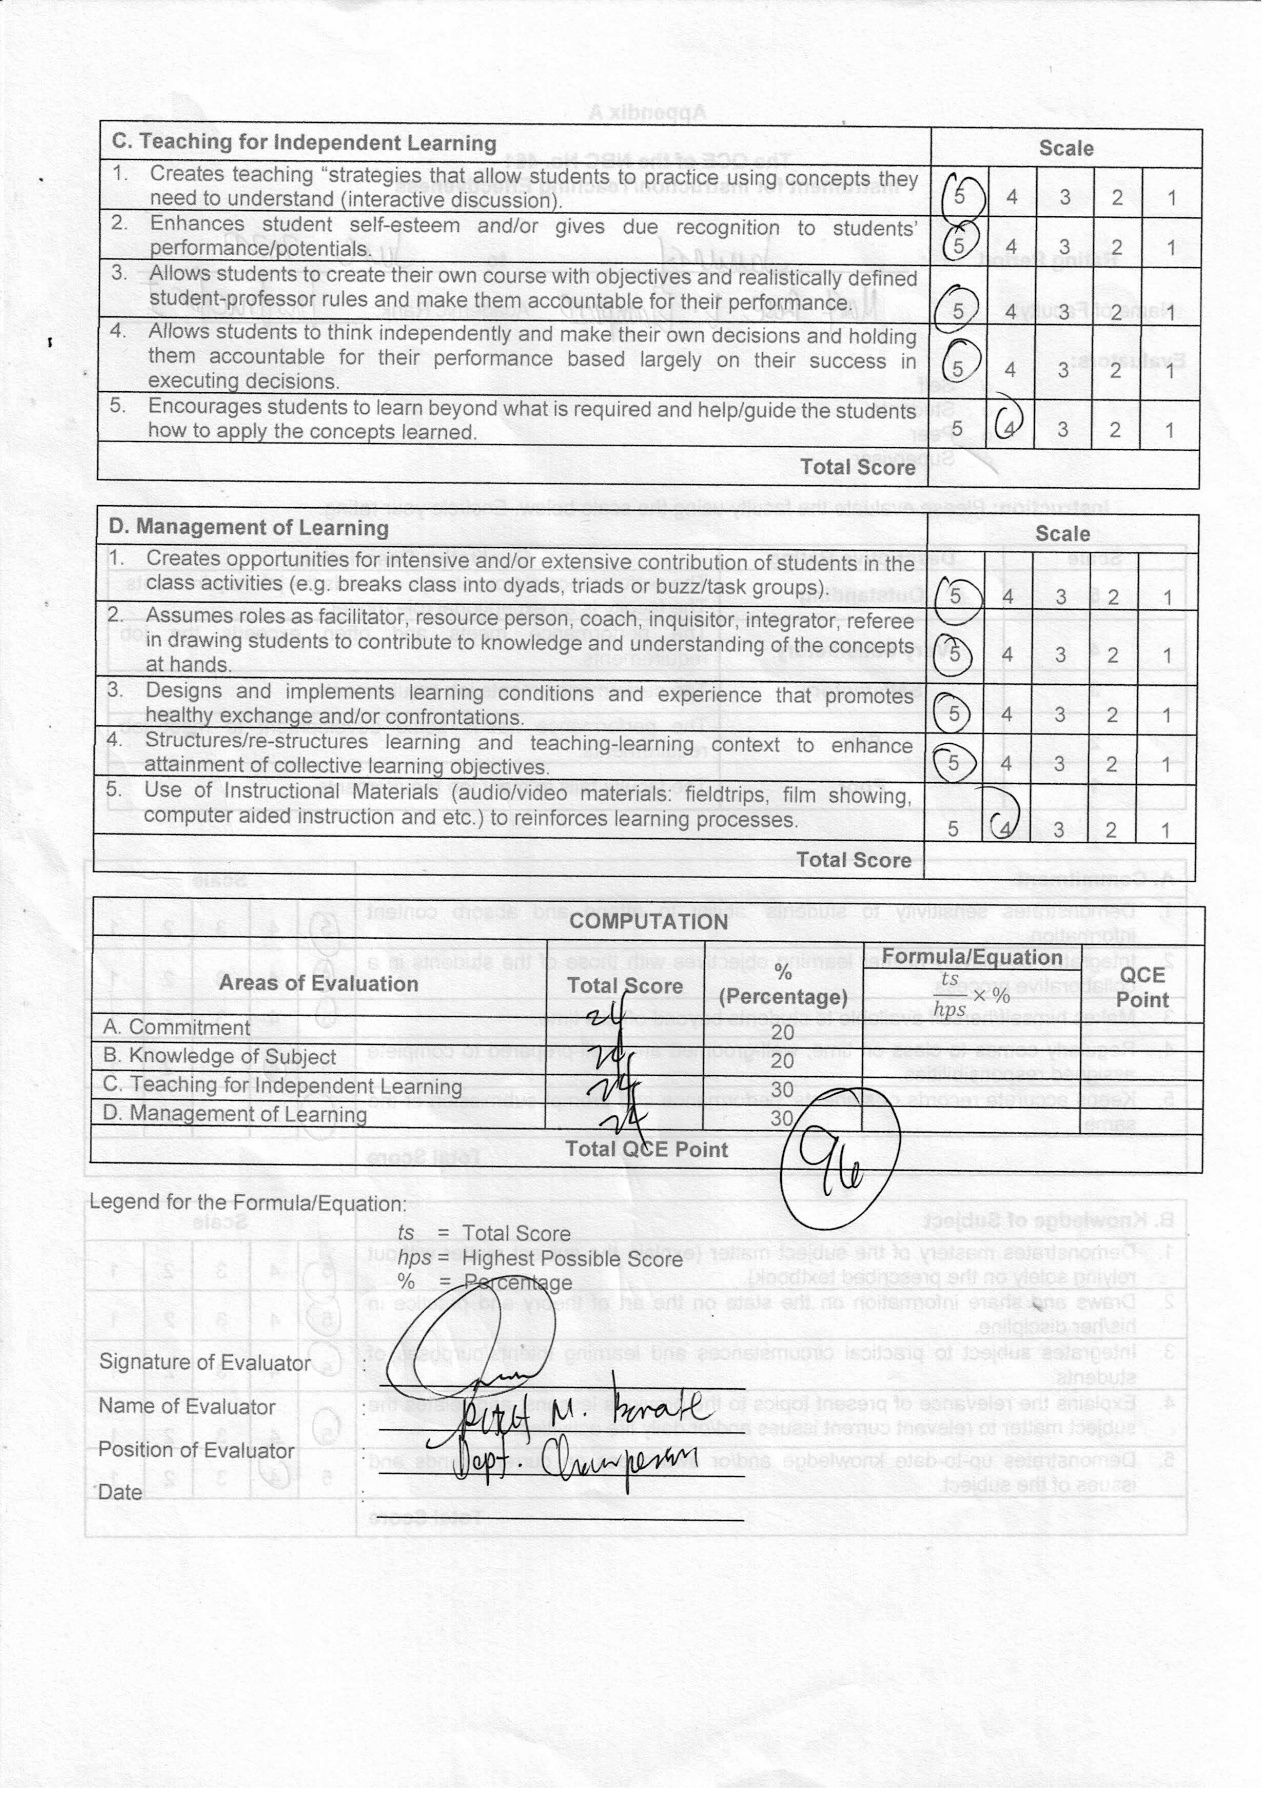 C. Teaching for Independent Learning Scale
1. Creates teaching “strategies that allow students to practice using concepts they
need to understand (interactive discussion). 5 4 3 2 1
2. Enhances student self-esteem and/or gives due recognition to students’
performance/potentials. 5 4 3 2 1
3. Allows students to create their own course with objectives and realistically defined
student-professor rules and make them accountable for their performance. 5 4 3 2 1
4. Allows students to think independently and make their own decisions and holding
them accountable for their performance based largely on their success in
executing decisions. 5 4 3 2 1
5. Encourages students to learn beyond what is required and help/guide the students
how to apply the concepts learned. 5 4 3 2 1
Total Score
D. Management of Learning Scale
1. Creates opportunities for intensive and/or extensive contribution of students in the
class activities (e.g. breaks class into dyads, triads or buzz/task groups). 5 4 3 2 1
2. Assumes roles as facilitator, resource person, coach, inquisitor, integrator, referee
in drawing students to contribute to knowledge and understanding of the concepts
at hands. 5 4 3 2 1
3. Designs and implements learning conditions and experience that promotes
healthy exchange and/or confrontations. 5 4 3 2 1
4. Structures/re-structures learning and teaching-learning context to enhance
attainment of collective learning objectives. 5 4 3 2 1
5. Use of Instructional Materials (audio/video materials: fieldtrips, film showing,
computer aided instruction and etc.) to reinforces learning processes. 5 4 3 2 1
Total Score
COMPUTATION
Areas of Evaluation Total Score % (Percentage) Formula/Equation ts/hps × % QCE Point
A. Commitment 24 20
B. Knowledge of Subject 24 20
C. Teaching for Independent Learning 24 30
D. Management of Learning 24 30
Total QCE Point 96
Legend for the Formula/Equation:
ts = Total Score
hps = Highest Possible Score
% = Percentage
Signature of Evaluator :
Name of Evaluator : M.
Position of Evaluator : Dept. Chairperson
Date :